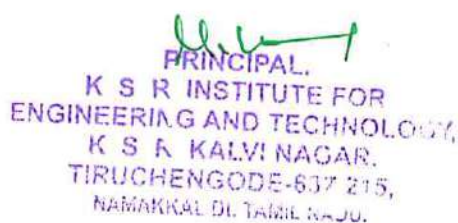 PRINCIPAL.
K S R INSTITUTE FOR
ENGINEERING AND TECHNOLOGY,
K S R KALVI NAGAR.
TIRUCHENGODE-637 215,
NAMAKKAL Dt. TAMIL NADU.